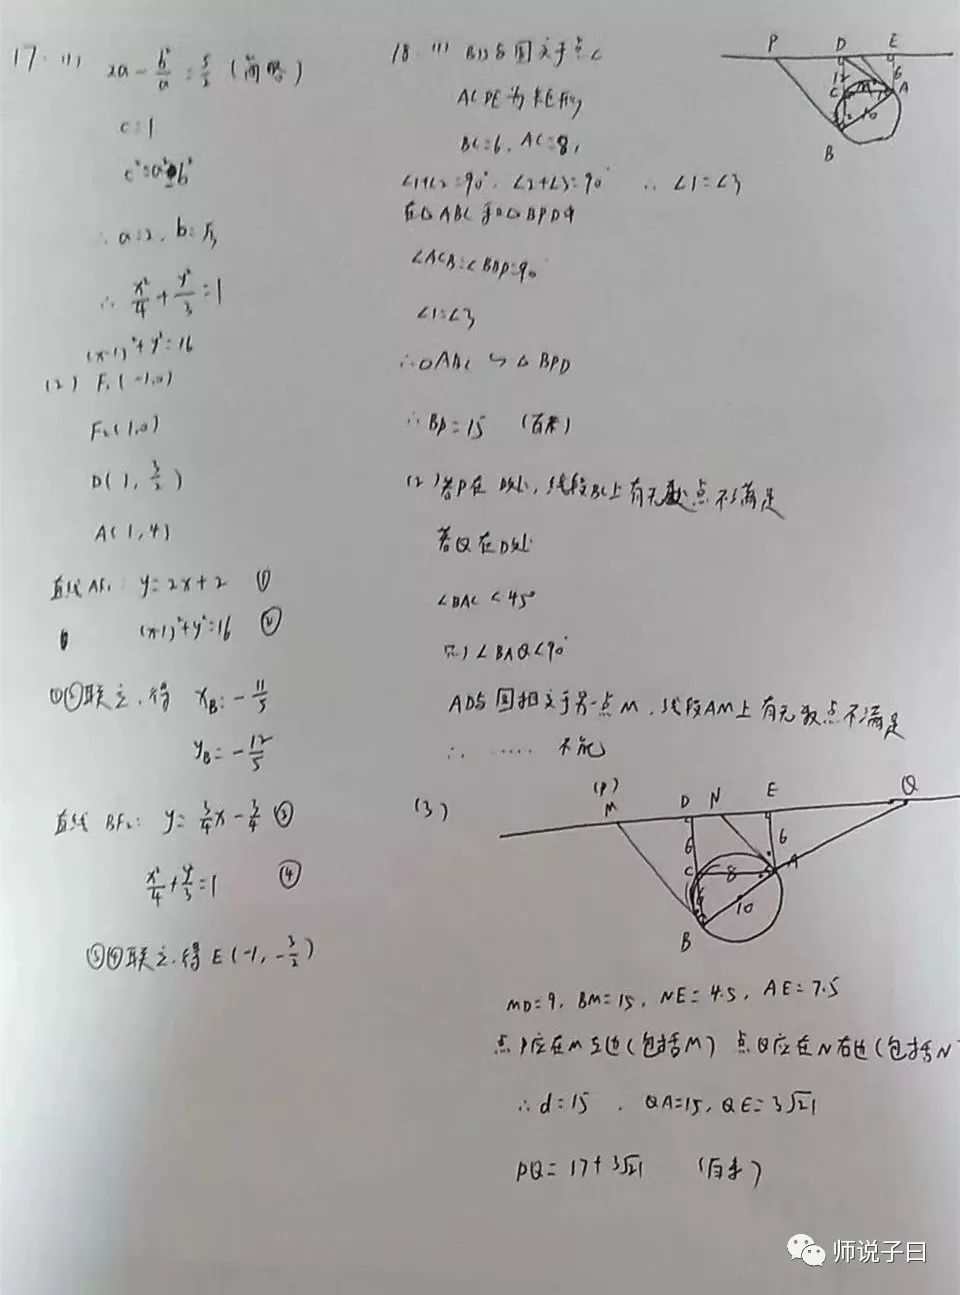 17. (1) 2a - b²/a = 5/2 (简略)
c=1
c²=a²-b²
∴ a=2, b=√3
∴ x²/4 + y²/3 = 1
(x-1)²+y²=16
(2) F₁(-1,0)
F₂(1,0)
D(1, 3/2)
A(1,4)
直线AF₁: y=2x+2 ①
(x-1)²+y²=16 ②
①②联立,得 x_B=-11/5
y_B=-12/5
直线 BF₂: y=3/4x-3/4 ③
x²/4+y²/3=1 ④
③④联立,得 E(-1, -3/2)
18. (1) BD与圆交于点C
ACDE为矩形
BC=6, AC=8,
∠1+∠2=90°, ∠2+∠3=90° ∴ ∠1=∠3
在△ABC和△BPD中
∠ACB=∠BDP=90°
∠1=∠3
∴△ABC ∽ △BPD
∴ BP=15 (百米)
(2) 若P在D处,线段BC上有无数点不满足
若Q在D处
∠BAC<45°
则∠BAQ<90°
AD与圆相交于另一点M,线段AM上有无数点不满足
∴ …… 不能
(3)
MD=9, BM=15, NE=4.5, AE=7.5
点P应在M左边(包括M) 点Q应在N右边(包括N
∴ d=15 . QA=15, QE=3√21
PQ=17+3√21 (百米)
P D E
6
C A
10
B
(P)
M D N E Q
6 6
C 8 A
10
B
师说子曰